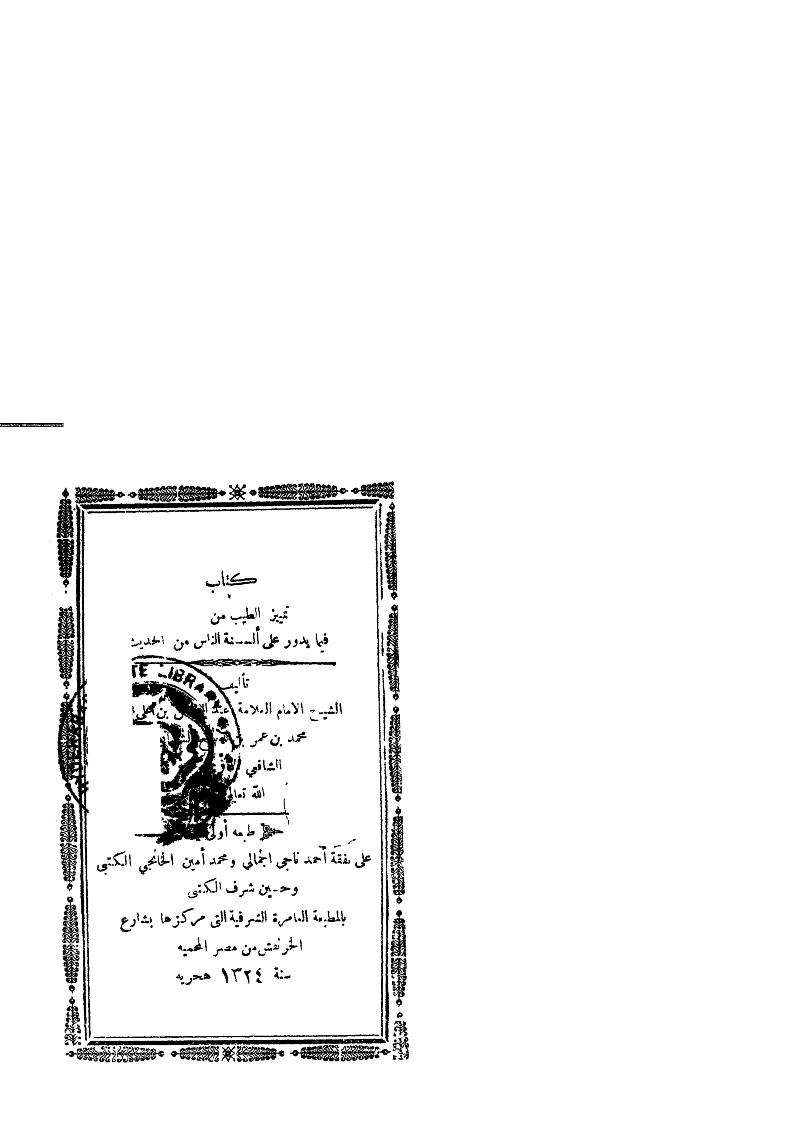 كتاب
تمييز الطيب من
فيما يدور على ألسنة الناس من الحديث
تأليف
الشيخ الامام العلامة عبد بن على
محمد بن عمر بن
الشافعي
الله تعالى
طبعه أولى
على نفقة أحمد ناجى الجمالي ومحمد أمين الخانجي الكتبى
وحسين شرف الكتبى
بالمطبعة العامرة الشرفية التى مركزها بشارع
الخرنفش من مصر المحميه
سنة ١٣٢٤ هجريه
TE LIBRA